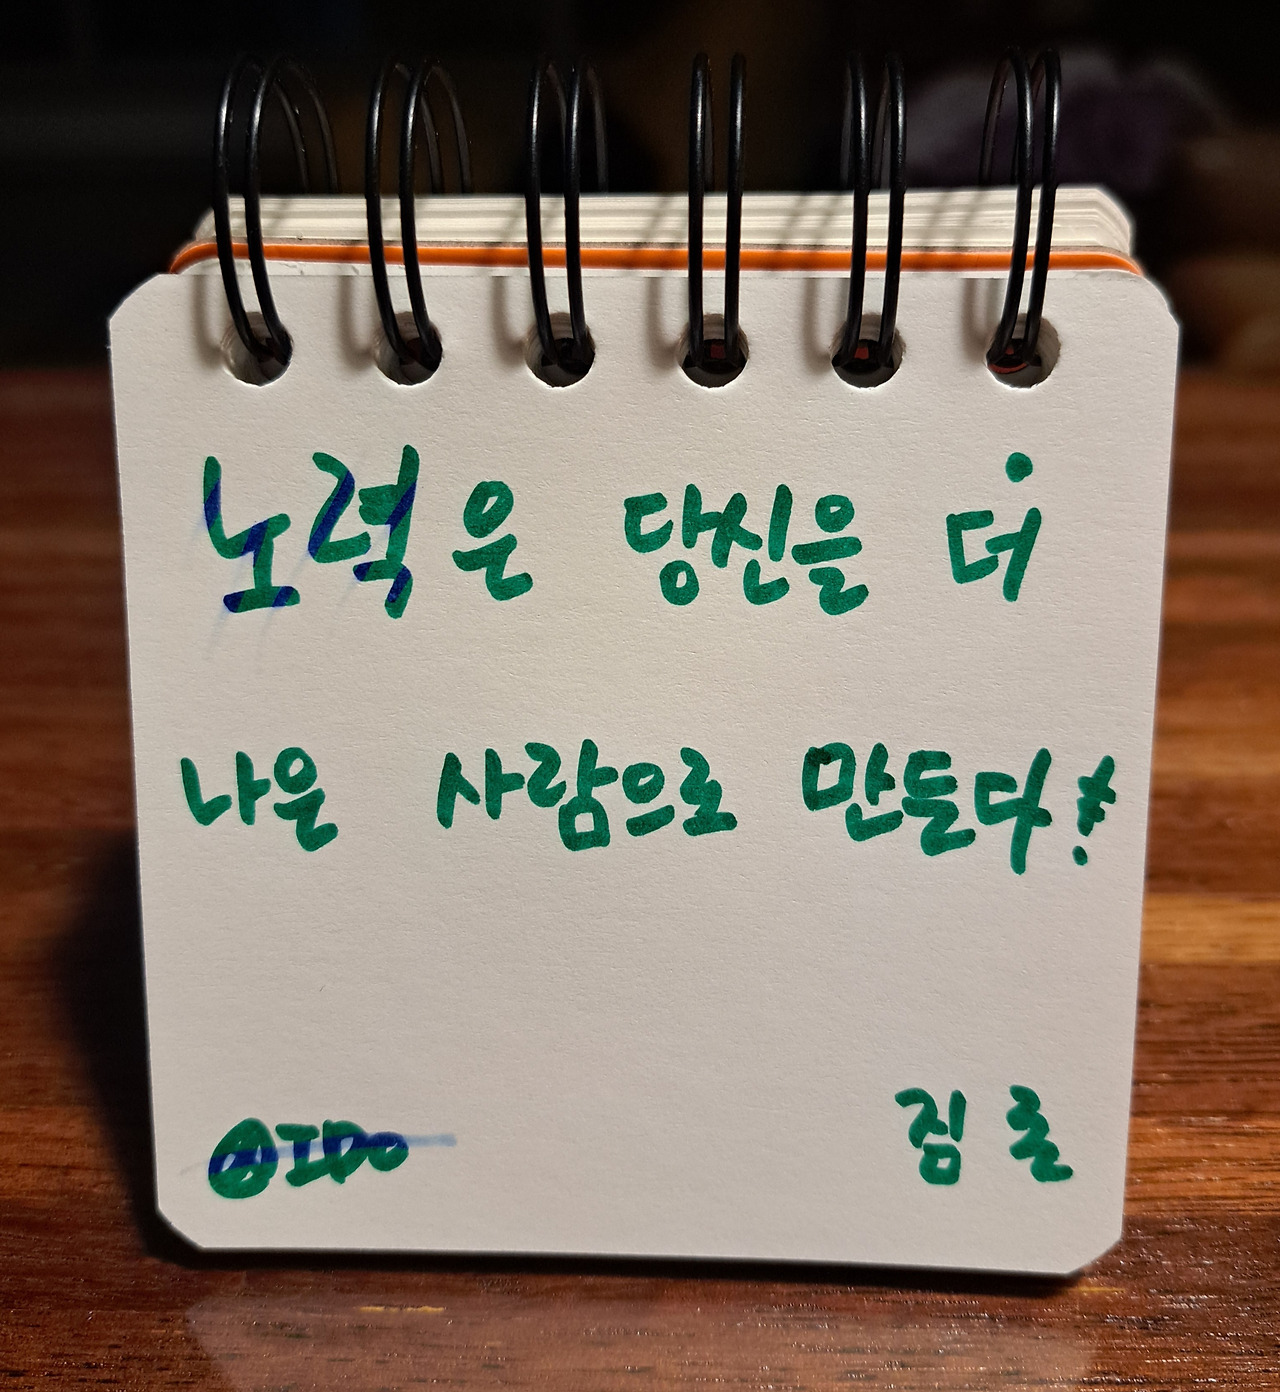 노력은 당신을 더
나은 사람으로 만든다!
짐 론